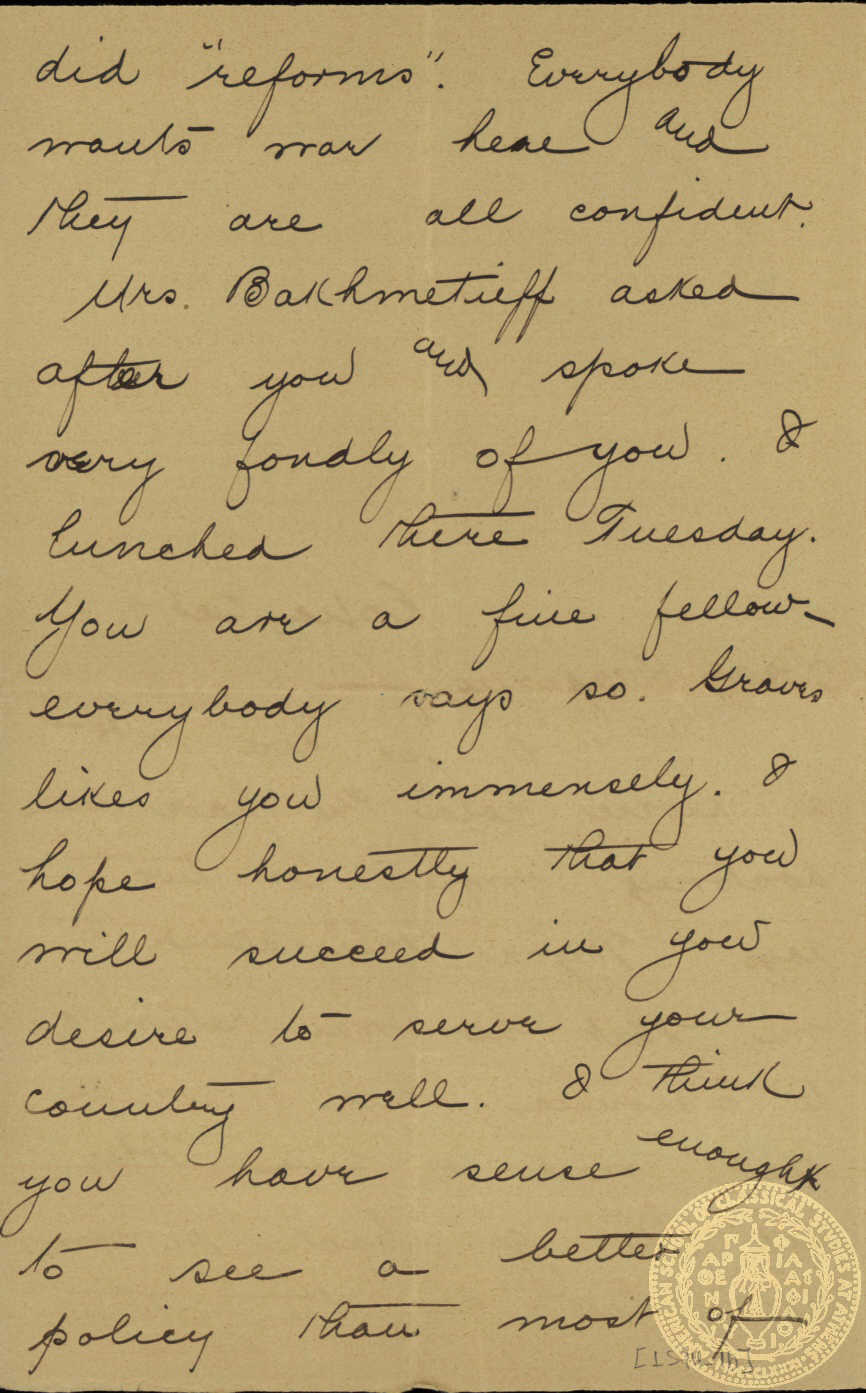 did "reforms". Everybody
wants war here and
they are all confident.
Mrs. Bakhmetieff asked
after you and spoke
very fondly of you. I
lunched there Tuesday.
You are a fine fellow–
everybody says so. Graves
likes you immensely. I
hope honestly that you
will succeed in your
desire to serve your
country well. I think
you have sense enough
to see a better
policy than most of
AMERICAN SCHOOL OF CLASSICAL STUDIES AT ATHENS